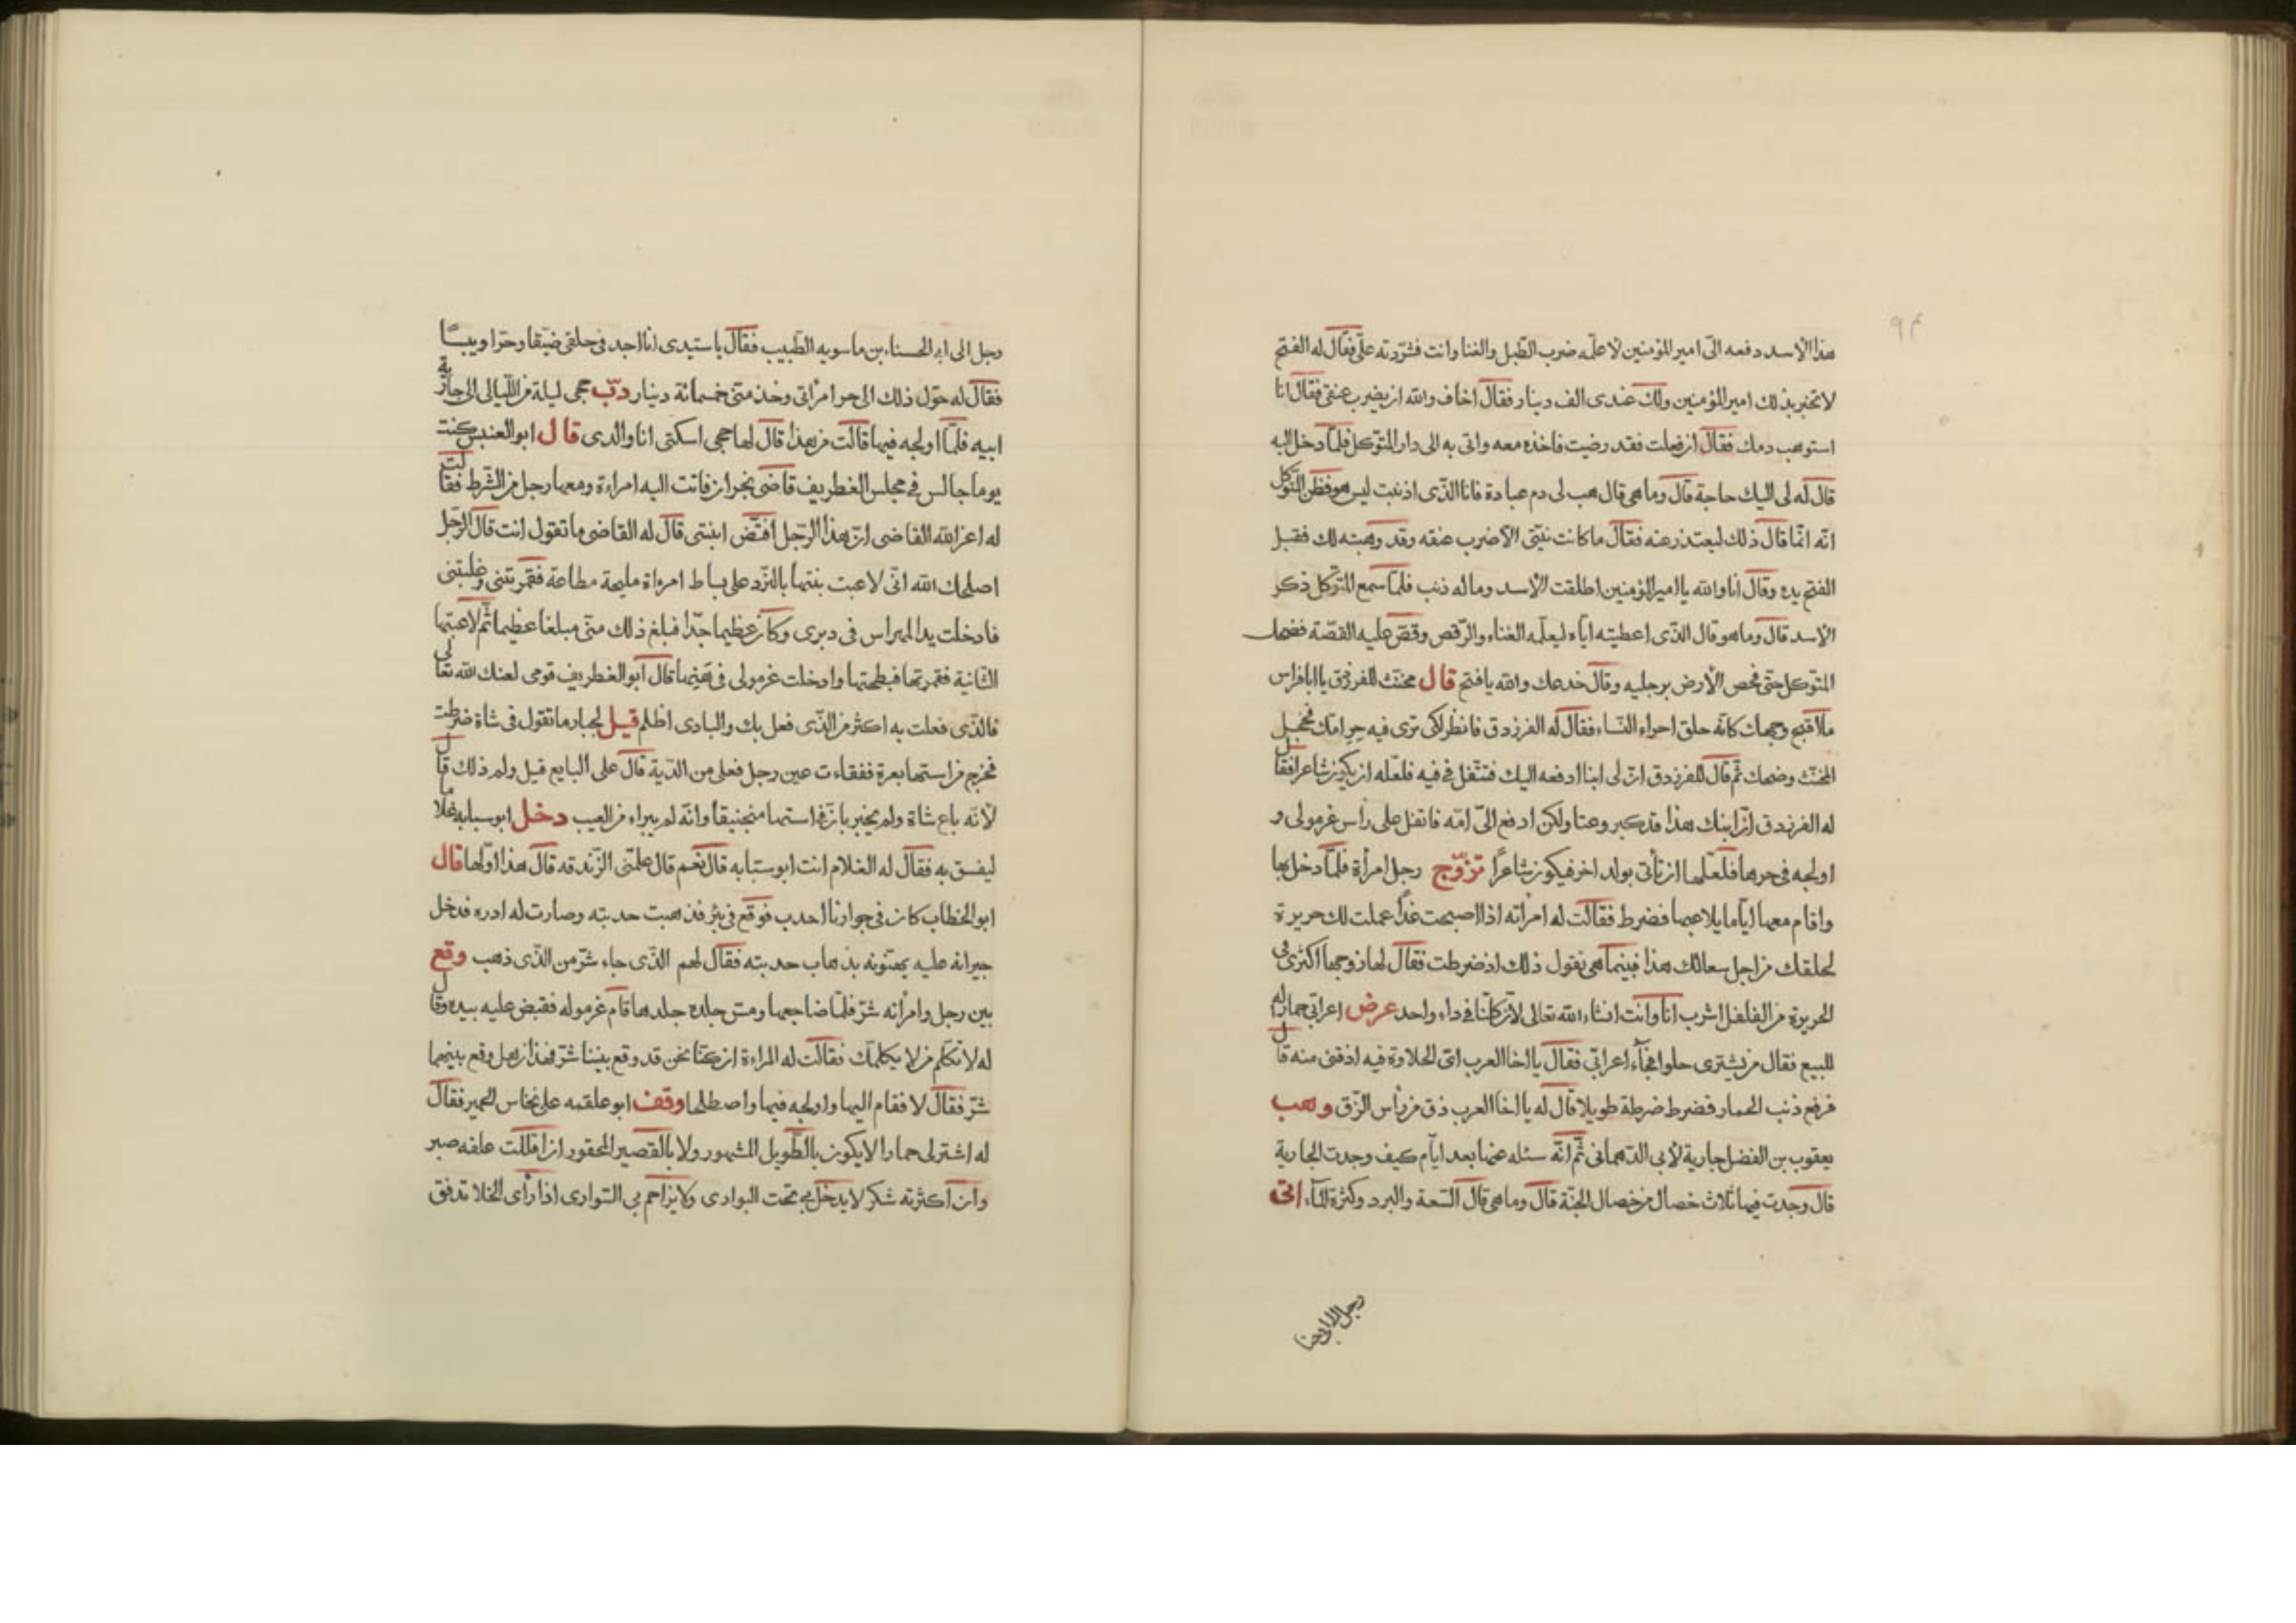 ٩٣
هذا الاسد دفعه الىّ امير المؤمنين لاعلّمه ضرب الطبل والغنا وانت فشرّدته علىّ فقال له الفتح
لا تخبر بذلك امير المؤمنين ولك عندى الف دينار فقال اخاف والله ان يضرب عنقى فقال انا
استوهب دمك فقال ان فعلت فقد رضيت فاخذه معه واتى به الى دار المتوكل فلمّا دخل اليه
قال له لى اليك حاجة قال وما هى قال هب لى دم عبادة فانا الذّى اذنبت ليس هو فظنّ المتوكل
انّه انّما قال ذلك ليعتذر عنه فقال ما كانت نيّتى الّا ضرب عنقه وقد وهبته لك فقبل
الفتح يده وقال انا والله يا امير المؤمنين اطلقت الاسد وما له ذنب فلمّا سمع المتوكل ذكر
الاسد قال وما هو قال الذّى اعطيته ايّاه ليعلّمه الغناء والرّقص وقصّ عليه القصّة فضحك
المتوكل حتى فحص الأرض برجليه وقال خدعك والله يا فتح قال مخنّث للفرزدق يا ابا فراس
ما اقبح وجهك كانّه حلق احراء النّساء فقال له الفرزدق فانظر لكى ترى فيه حر امّك فخجل
المخنّث وضحك ثمّ قال للفرزدق انّ لى ابنا ادفعه اليك فتتفل فى فيه فلعلّه ان يكون شاعرا فقال
له الفرزدق انّ ابنك هذا قد كبر وعتا ولكن ادفع الىّ امّه فاتفل على رأس غرمولى و
اولجه فى حرها فلعلّها ان تأتى بولد اخر فيكون شاعرًا تزوّج رجل امرأة فلمّا دخل بها
واقام معها ايّاما يلاعبها فضرط فقالت له امرأته اذا اصبحت غدًا عملت لك حريرة
لحلقك من اجل سعالك هذا فبينما هى تقول ذلك اذ ضرطت فقال لها زوجها اكثرى فى
الحريرة من الفلفل اشرب انا وانت انشاء الله تعالى لانّ كلّنا فى داء واحد عرض اعرابى حمارا له
للبيع فقال من يشترى حلوا فجآء اعرابى فقال يا اخا العرب اىّ الحلاوة فيه اذقنى منه قال
فرفع ذنب الحمار فضرط ضرطة طويلا قال له يا اخا العرب ذق من رأس الزّق وهب
يعقوب بن الفضل جارية لأبى الدّهمانى ثمّ انّه سئله عنها بعد ايّام كيف وجدت الجارية
قال وجدت فيها ثلاث خصال من خصال الجنّة قال وما هى قال السّعة والبرد وكثرة المآء اتى
رجل الى ابى الحسناء
رجل الى ابى الحسناء بن ماسويه الطّبيب فقال يا سيّدى انا اجد فى حلقى ضيقا وحرّا ويبسًا
فقال له حوّل ذلك الى حر امرأتى وخذ منّى خمسمائة دينار دبّ حجى ليلة من اللّيالى الى جارية
ابيه فلمّا اولجه فيها قالت من هذا قال لها حجى اسكتى انا والدى قال ابو العنبس كنت
يوما جالس فى مجلس الغطريف قاضى نجران فاتت اليه امراءة ومعها رجل من الشّرط فقالت
له اعز الله القاضى انّ هذا الرّجل افتضّ ابنتى قال له القاضى ما تقول انت قال الرّجل
اصلحك الله انّى لاعبت بنتها بالنّرد على بساط امرءاة مليحة مطاعة فقمرتنى وغلبتنى
فادخلت يد المهراس فى دبرى وكان عظيما جدّا فبلغ ذلك منّى مبلغا عظيما ثمّ لاعبتها
الثّانية فقمرتها فبطحتها وادخلت غرمولى فى قال ابو الغطريف قومى لعنك الله تعالى
فالذّى فعلت به اكثر من الذّى فعل بك والبادى اظلم قيل لجبار ما تقول فى شاة ضرطت
فخرج من استها بعرة ففقاءت عين رجل فعلى من الدّية قال على البايع قيل ولم ذلك قال
لأنّه باع شاة ولم يخبر بانّ فى استها منجنيقا وانّه لم يبراء من العيب دخل ابو سبابه بغلام
ليفسق به فقال له الغلام انت ابو سبابه قال نعم قال علّمنى الزّندقه قال هذا اوّلها قال
ابو الخطاب كان فى جوارنا احدب فوقع فى بئر فذهبت حدبته وصارت له ادره فدخل
جيرانه عليه يهنّونه بذهاب حدبته فقال لهم الذّى جاء شرّ من الذّى ذهب وقع
بين رجل وامرأته شرّ فلمّا ضاجعها ومسّ جلده جلدها قام غرموله فقبض عليه بيده وقال
له لا تكلّم من لا يكلّمك فقالت له المراءة ان كنّا نحن قد وقع بيننا شرّ فهذان هل وقع بينهما
شرّ فقال لا فقام اليها واولجه فيها واصطلحا وقف ابو علقمه على نخّاس الحمير فقال
له اشتر لى حمارا لا يكون بالطّويل المشهور ولا بالقصير المحقور ان اقللت علفه صبر
وان اكثرته شكر لا يدخل بى تحت البوادى ولا يزاحم بى السّوارى اذا رأى الخلا تدفق